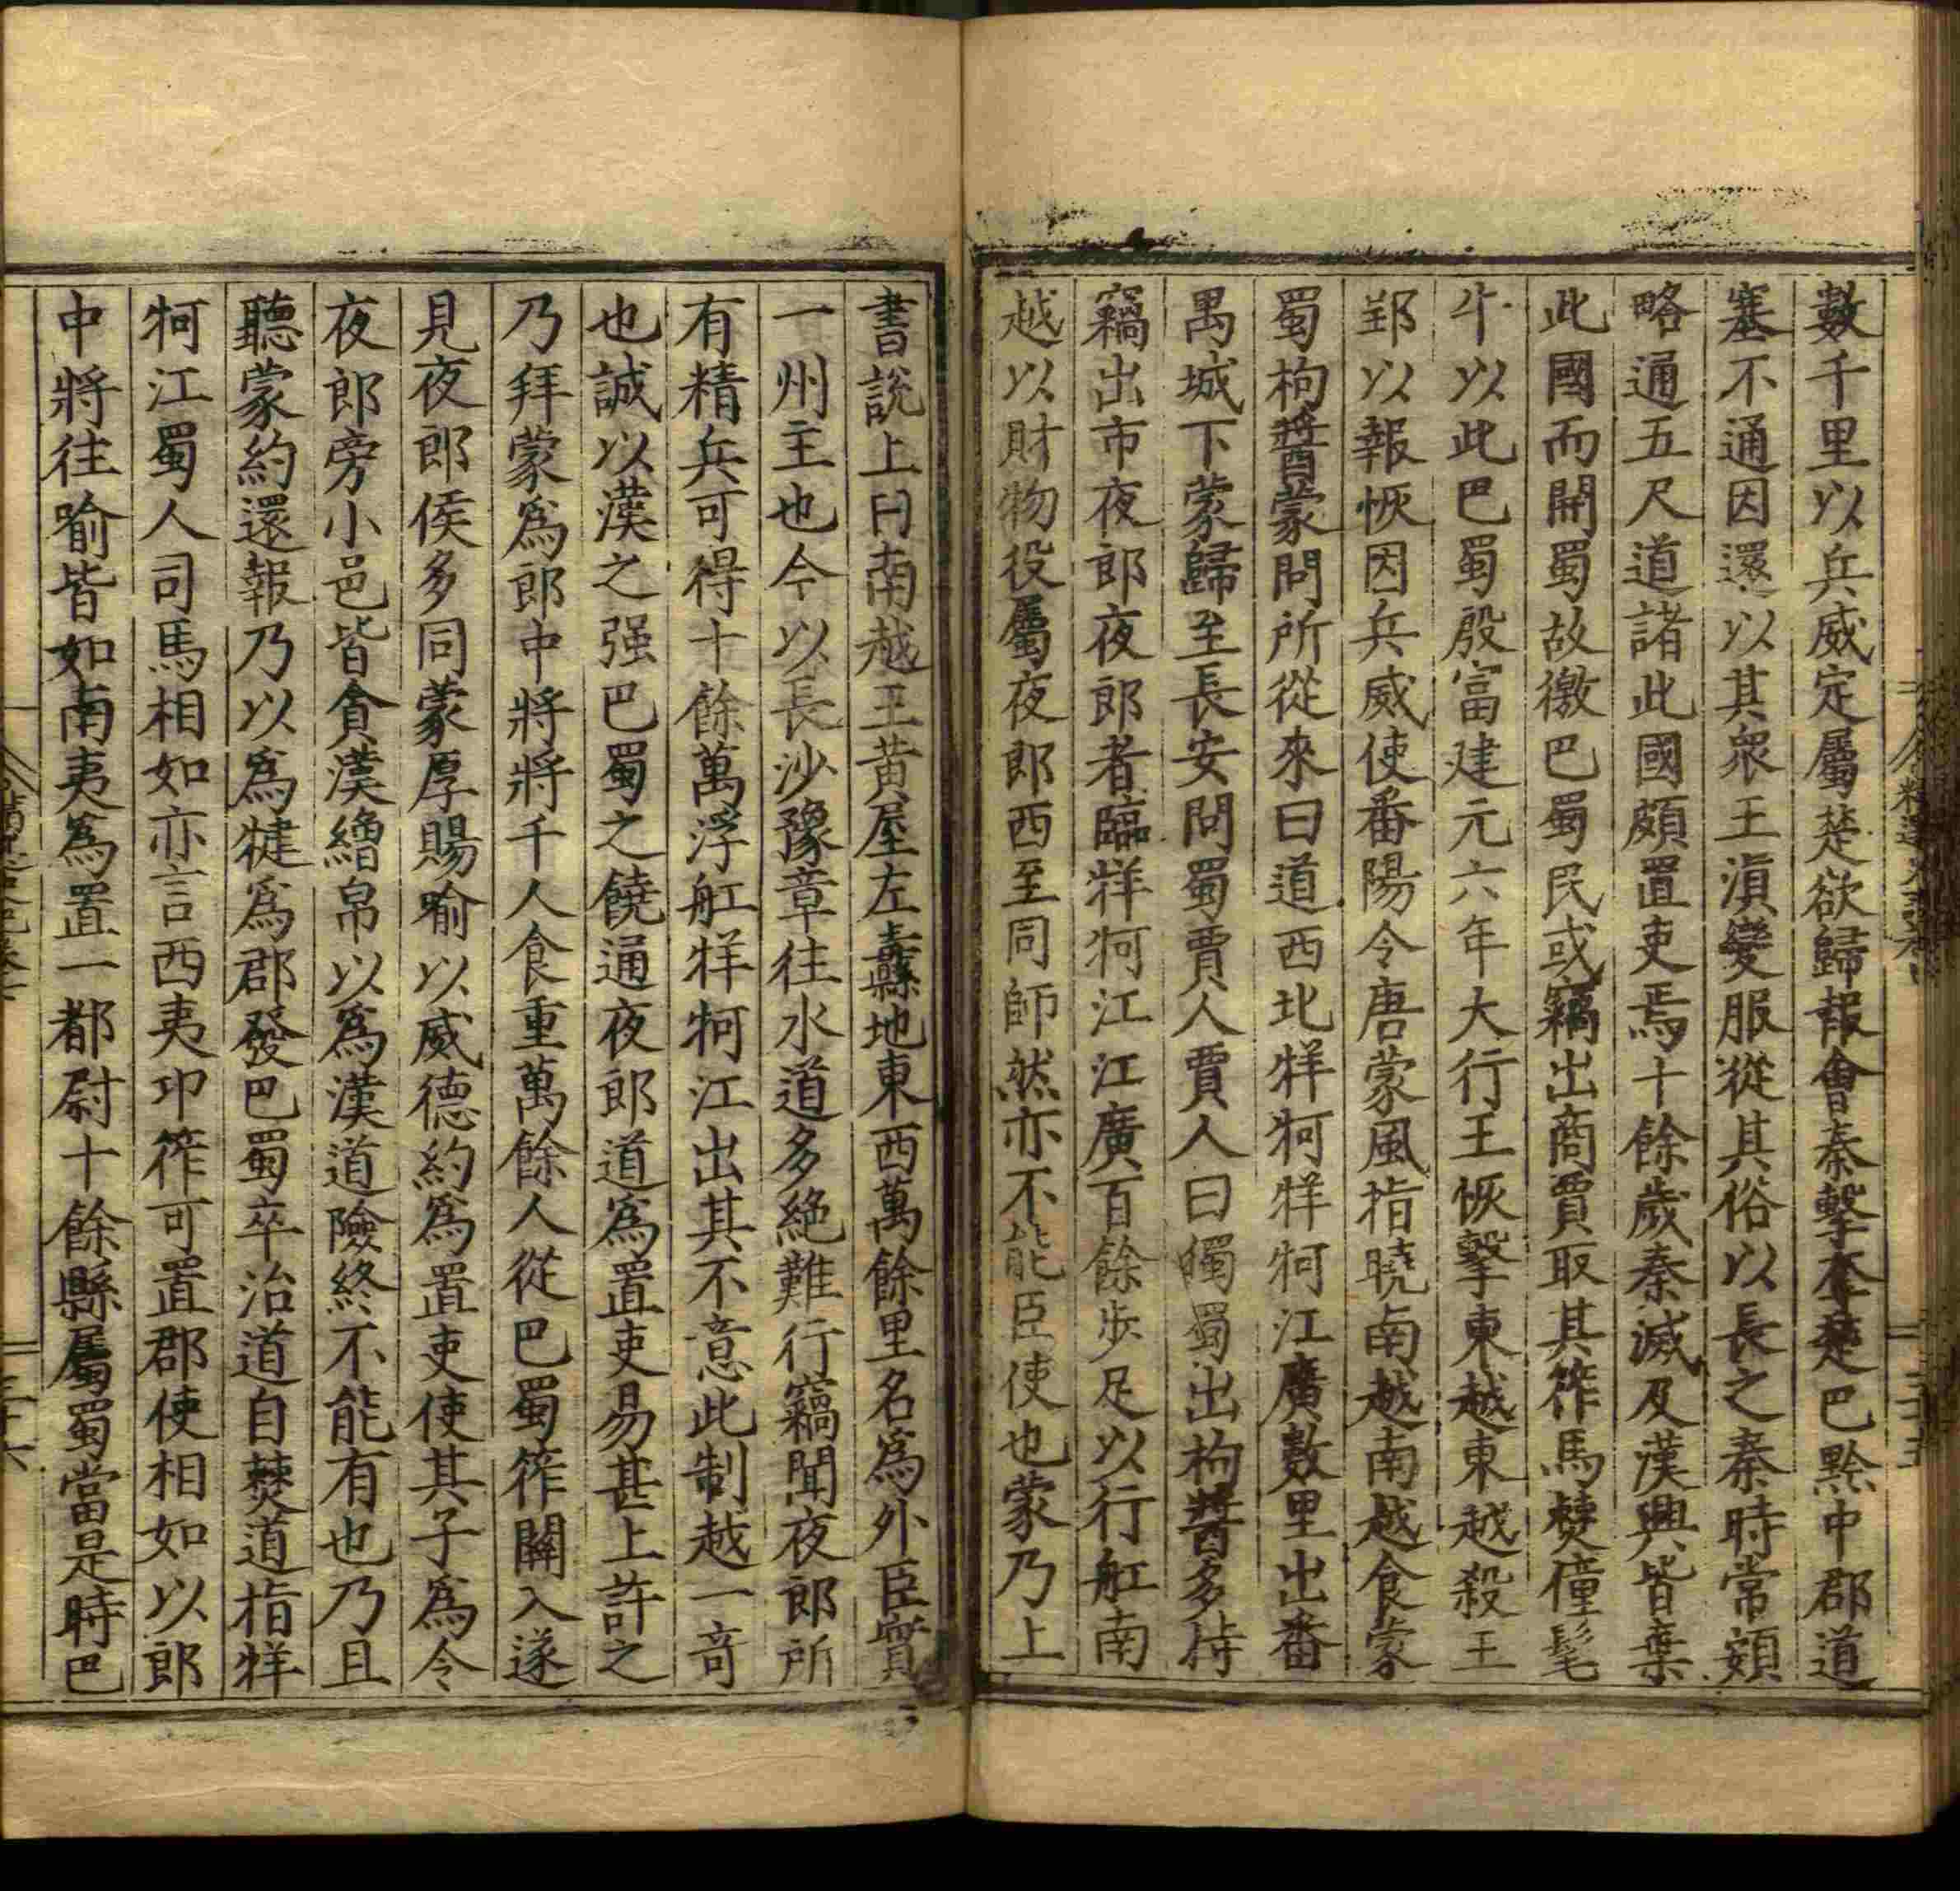 數千里以兵威定屬楚欲歸報會秦擊奪楚巴黔中郡道
塞不通因還以其衆王滇變服從其俗以長之秦時常頞
略通五尺道諸此國頗置吏焉十餘歲秦滅及漢興皆棄
此國而開蜀故徼巴蜀民或竊出商賈取其筰馬僰僮髦
牛以此巴蜀殷富建元六年大行王恢擊東越東越殺王
郢以報恢因兵威使番陽令唐蒙風指曉南越南越食蒙
蜀枸醬蒙問所從來曰道西北牂牁牂牁江廣數里出番
禺城下蒙歸至長安問蜀賈人賈人曰獨蜀出枸醬多持
竊出市夜郎夜郎者臨牂牁江江廣百餘步足以行舡南
越以財物役屬夜郎西至同師然亦不能臣使也蒙乃上
書說上曰南越王黃屋左纛地東西萬餘里名爲外臣實
一州主也今以長沙豫章往水道多絕難行竊聞夜郎所
有精兵可得十餘萬浮舡牂牁江出其不意此制越一奇
也誠以漢之强巴蜀之饒通夜郎道爲置吏易甚上許之
乃拜蒙爲郎中將將千人食重萬餘人從巴蜀筰關入遂
見夜郎侯多同蒙厚賜喻以威德約爲置吏使其子爲令
夜郎旁小邑皆貪漢繒帛以爲漢道險終不能有也乃且
聽蒙約還報乃以爲犍爲郡發巴蜀卒治道自僰道指牂
牁江蜀人司馬相如亦言西夷卭筰可置郡使相如以郎
中將往喻皆如南夷爲置一都尉十餘縣屬蜀當是時巴